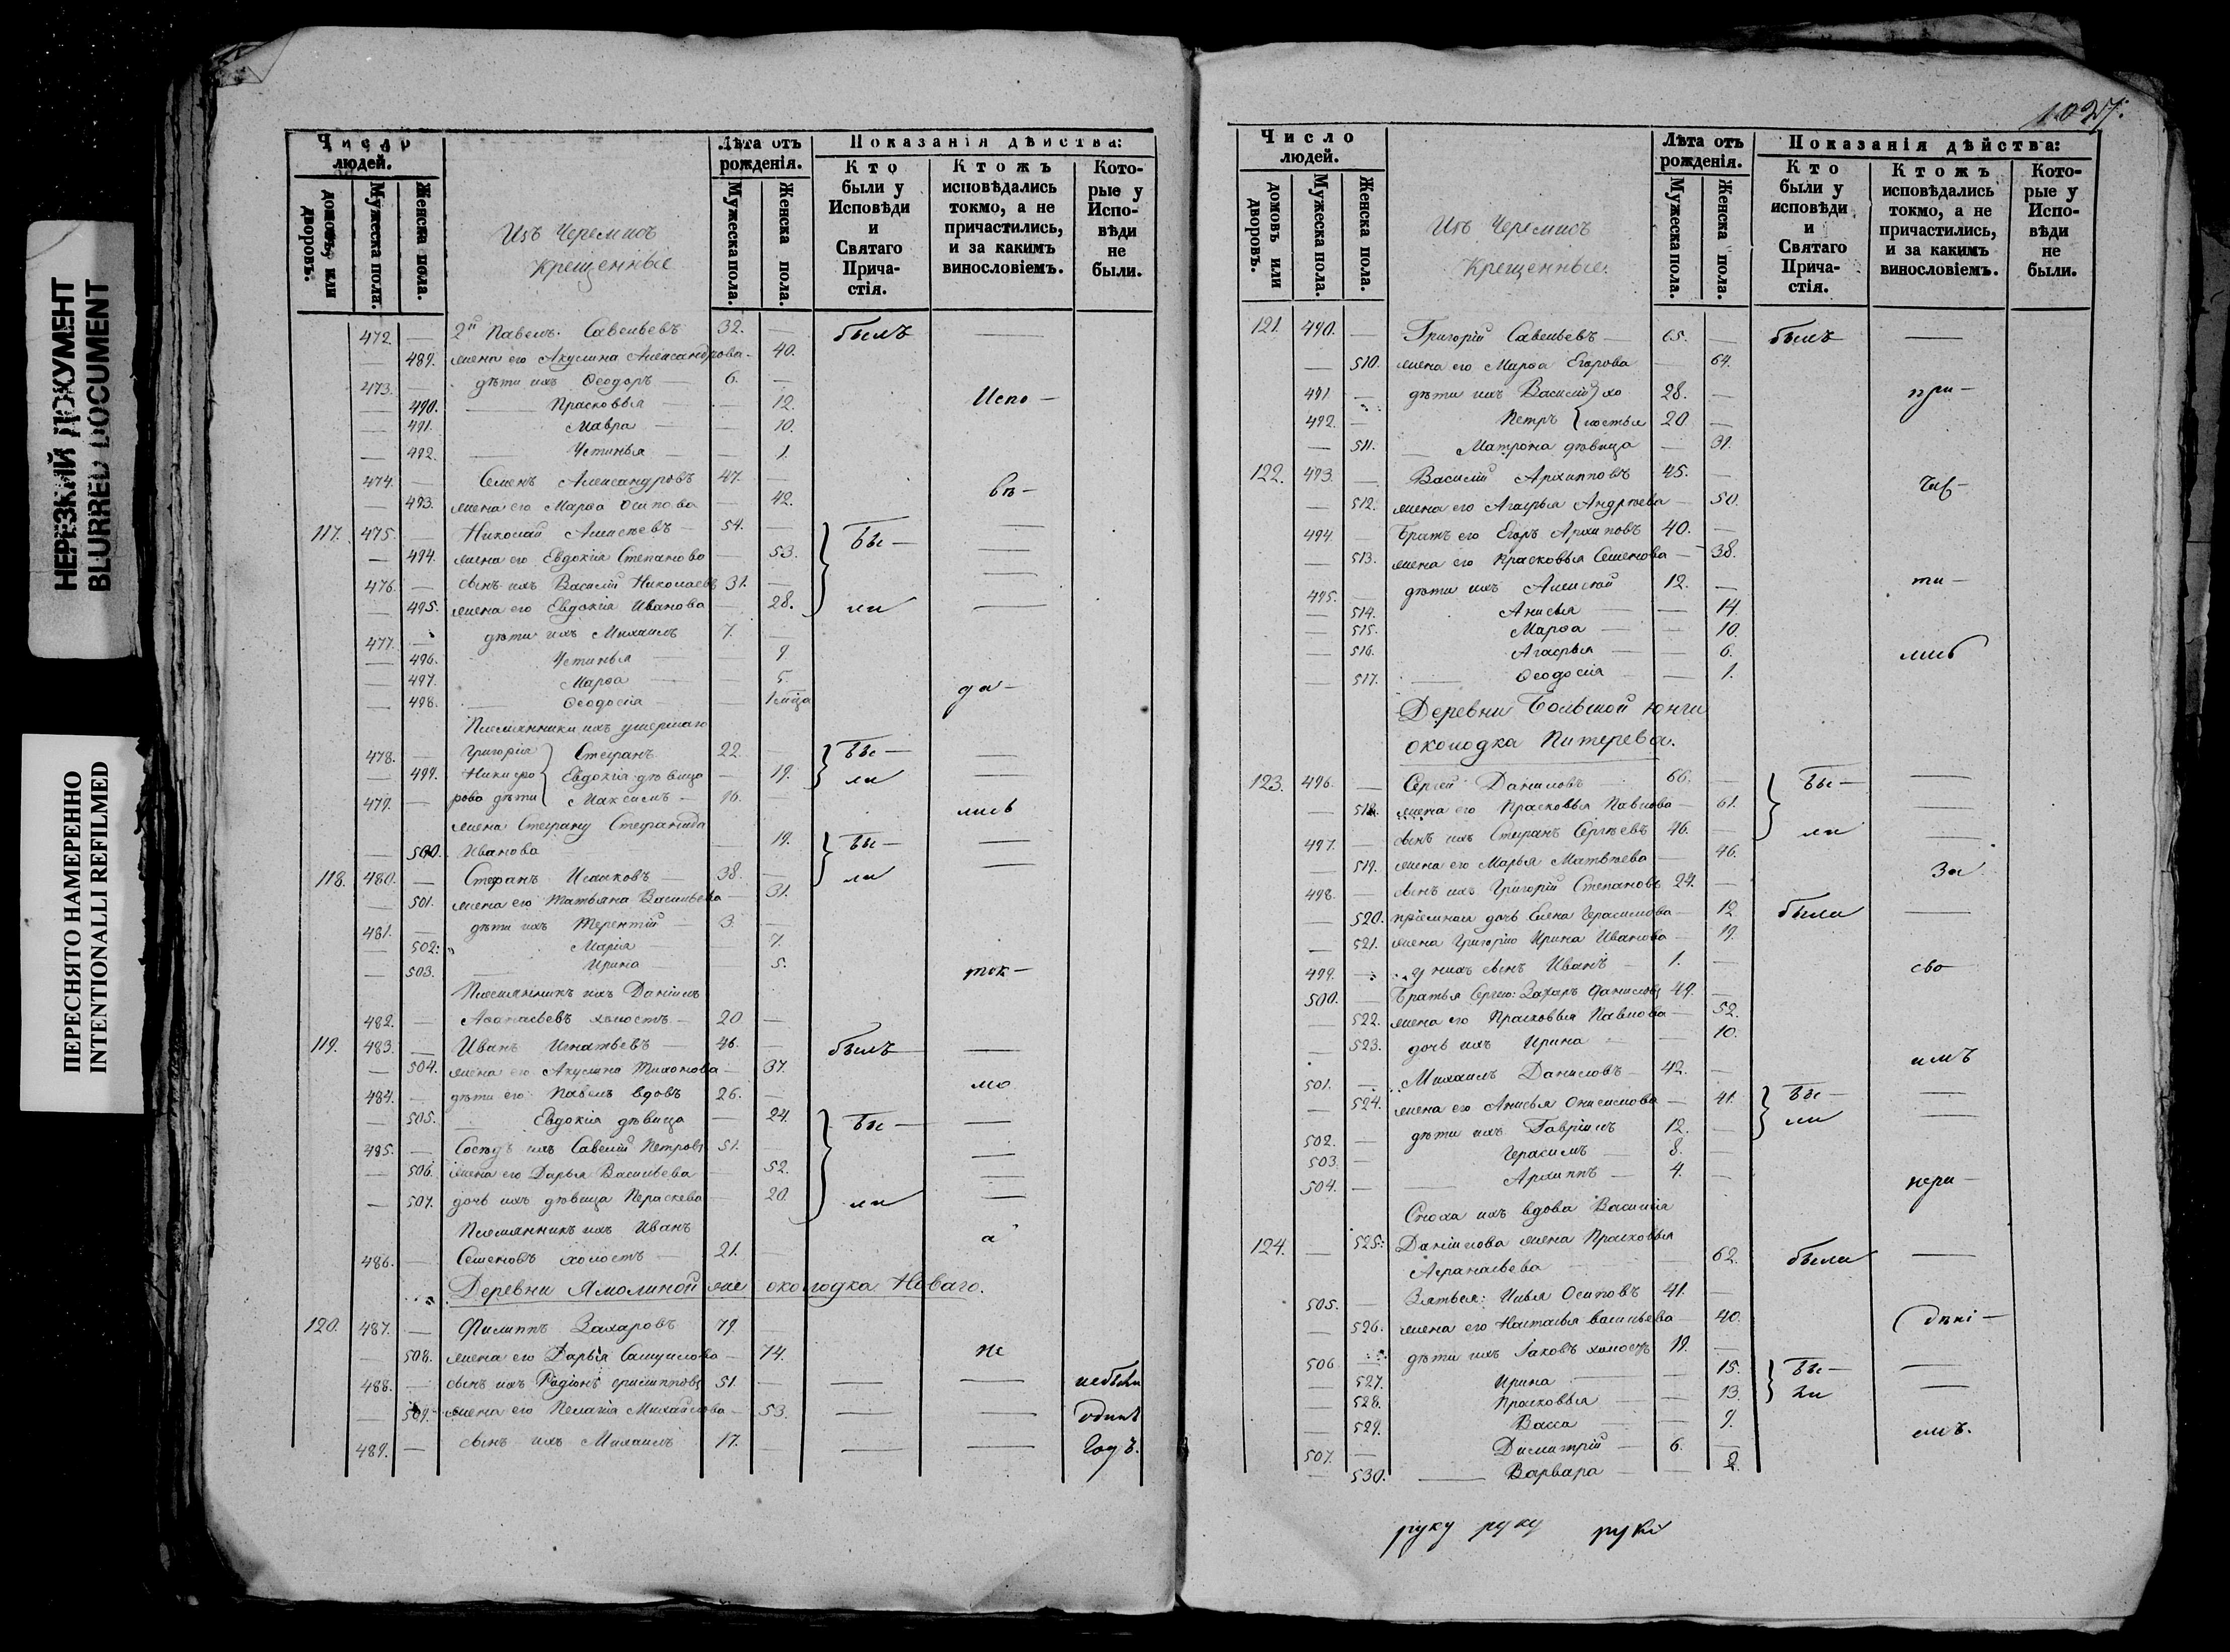 НЕРЕЗКИЙ ДОКУМЕНТ
BLURRED DOCUMENT
ПЕРЕСНЯТО НАМЕРЕННО
INTENTIONALLI REFILMED
Число людей.
домовъ или дворовъ.
Мужеска пола.
Женска пола.
Изъ Черемисъ
Крещенные
Лѣта отъ рожденія.
Мужеска пола.
Женска пола.
Показанія дѣйства:
Кто были у Исповѣди и Святаго Прича-стія.
Ктожъ исповѣдались токмо, а не причастились, и за какимъ винословіемъ.
Кото-рые у Испо-вѣди не были.
472. — 2й Павелъ Савельевъ 32. — былъ —
— 489. жена его Акулина Александрова — 40.
473. — дѣти ихъ Ѳеодоръ — 6. —
— 490. Прасковья — — 12. Испо-
— 491. Мавра — — 10.
— 492. Устинья — — 1.
474. — Семенъ Александровъ 47. — вѣ-
— 493. жена его Марѳа Осипова — 42.
117. 475. — Николай Алексѣевъ — 54. — Бы- —
— 494. жена его Евдокія Степанова — 53. —
476. — сынъ ихъ Василій Николаевъ 31. — —
— 495. жена его Евдокія Иванова — 28. ли —
477. — дѣти ихъ Михаилъ 7. —
— 496. Устинья — — 9
— 497. Марѳа — — 5. да-
— 498. Ѳеодосія — — 1 мѣца
Племянники ихъ умершаго
478. — Григорія Стефанъ 22. — Бы- —
— 499. Никифо Евдокія дѣвица — 19. ли —
479. — рова дѣти Максимъ — 16. лись
жена Стефану Стефанида
— 500. Иванова — 19. Бы- —
118. 480. — Стефанъ Исаковъ — 38. — ли —
— 501. жена его Татьяна Васильева — 31.
481. — дѣти ихъ Терентій — 3. —
— 502. Марія — 7.
— 503. Ирина — 5. ток-
Племянникъ ихъ Даніилъ
482. — Аѳонасьевъ холостъ — 20 —
119. 483. — Иванъ Игнатьевъ — 46. — былъ —
— 504. жена его Акулина Тихонова — 37.
484. — дѣти его Павелъ вдовъ 26. — мо
— 505. Евдокія дѣвица — 24. Бы- —
485. — Сосѣдъ ихъ Савелій Петровъ 51. — —
— 506. жена его Дарья Васильева — 52. —
— 507. дочь ихъ дѣвица Параскева — 20. ли —
Племянникъ ихъ Иванъ
486. — Семеновъ холостъ — 21. а
Деревни Ямолиной же околодка Новаго.
120. 487. — Филиппъ Захаровъ 79. —
— 508. жена его Дарья Самуилова — 74. не
488. — сынъ ихъ Радіонъ Филипповъ 51. — — — небыли
— 509. жена его Пелагія Михайлова — 53. — — одинъ
489. — сынъ ихъ Михаилъ 17. — — — годъ.
1027.
Число людей.
домовъ или дворовъ.
Мужеска пола.
Женска пола.
Изъ Черемисъ
Крещенные.
Лѣта отъ рожденія.
Мужеска пола.
Женска пола.
Показанія дѣйства:
Кто были у исповѣди и Святаго Прича-стія.
Ктожъ исповѣдались токмо, а не причастились, и за какимъ винословіемъ.
Кото-рые у Испо-вѣди не были.
121. 490. — Григорій Савельевъ — 65. — былъ —
— 510. жена его Марѳа Егорова — 64.
491. — дѣти ихъ Василій хо 28. — при-
492. — Петръ лостые 20. —
— 511. Матрона дѣвица — 31.
122. 493. — Василій Архипповъ 45. — час-
— 512. жена его Агафья Андрѣева — 50.
494. — Братъ его Егоръ Архиповъ 40. —
— 513. жена его Прасковья Семенова — 38.
495. — дѣти ихъ Алексѣй 12. — ти-
— 514. Анисья — — 14.
— 515. Марѳа — — 10.
— 516. Агафья — — 6. лись
— 517. Ѳеодосія — — 1.
Деревни Большой Юнги
околодка Питерева.
123. 496. — Сергей Даниловъ — 66. — Бы- —
— 518. жена его Прасковья Павлова — 61. —
497. — сынъ ихъ Стефанъ Сергѣевъ 46. — ли —
— 519. жена его Марья Матвѣева — 46. За
498. — сынъ ихъ Григорій Степановъ 24. —
— 520. пріемная дочь Елена Герасимова — 12 была —
— 521. жена Григорію Ирина Иванова — 19.
499. — у нихъ сынъ Иванъ — 1. — сво-
500. — Братья Сергею: Захаръ Даниловъ 49. —
— 522. жена его Прасковья Павлова — 52.
— 523. дочь ихъ Ирина — — 10.
501. — Михаилъ Даниловъ — 42. — имъ
— 524. жена его Анисья Онисимова — 41. Бы- —
502. — дѣти ихъ Гавріилъ 12. — ли —
503. — Герасимъ — 8. —
504. — Архиппъ — 4. — нера-
Сноха ихъ вдова Василія
124. — 525. Даніилова жена Прасковья
Афанасьева — 62. была —
505. — Зятья: Илья Осиповъ 41. —
— 526. жена его Настасья Васильева — 40. дѣні-
506. — дѣти ихъ Іаковъ холостъ 19. —
— 527. Ирина — — 15. Бы- —
— 528. Прасковья — — 13. ли —
— 529. Васса — — 9.
507. — Димитрій — 6. — емъ.
— 530. Варвара — — 2.
руку руку руки